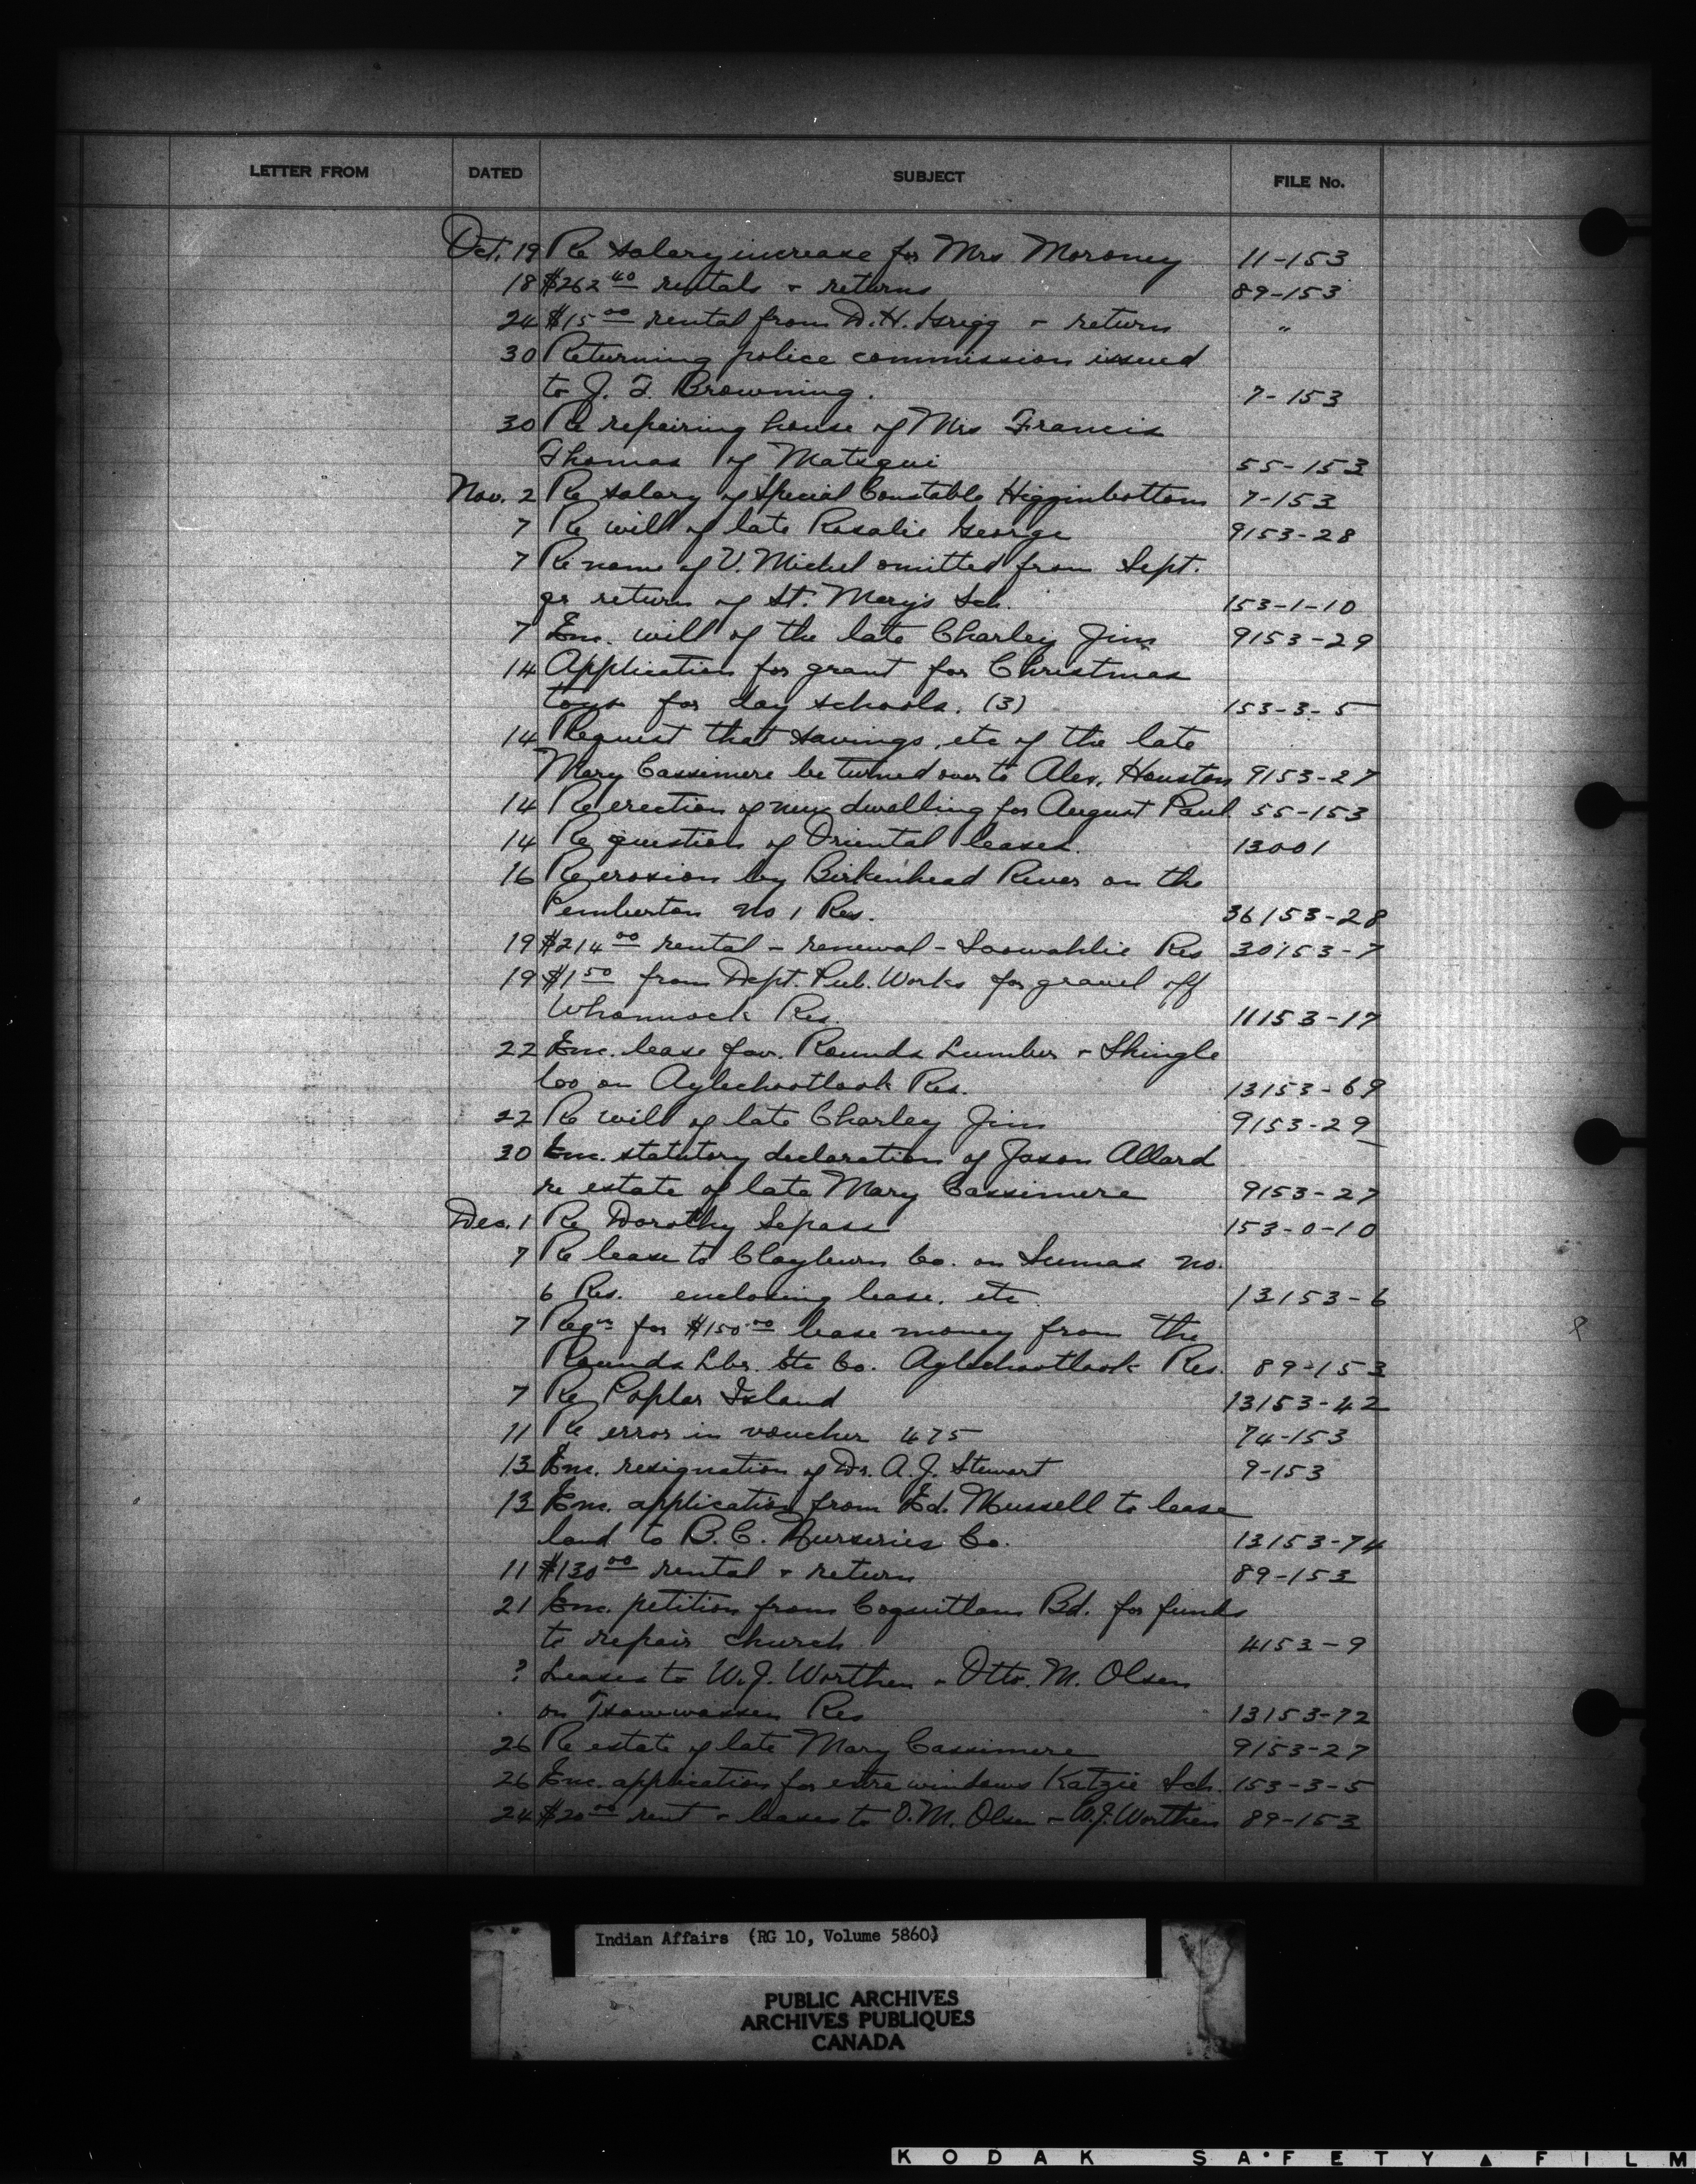 LETTER FROM DATED SUBJECT FILE No.
Oct. 19 Re salary increase for Mrs Moroney 11-153
18 $262.40 rentals & returns 89-153
24 $15.00 rental from D.H. Grigg & return "
30 Returning police commission issued
to J. F. Browning. 7-153
30 Re repairing house of Mrs Francis
Thomas of Matsqui 55-153
Nov. 2 Re salary of Special Constable Higginbottom 7-153
7 Re will of late Rosalie George 9153-28
7 Re name of V. Michel omitted from Sept.
qr return of St. Mary's Sch. 153-1-10
7 Enc. will of the late Charley Jim 9153-29
14 Application for grant for Christmas
toys for day schools. (3) 153-3-5
14 Request that savings, etc of the late
Mary Cassimere be turned over to Alex. Houston 9153-27
14 Re erection of new dwelling for August Paul 55-153
14 Re question of Oriental leases. 13001
16 Re erosion by Birkenhead River on the
Pemberton No 1 Res. 36153-28
19 $214.00 rental - renewal - Soowahlie Res 30153-7
19 $1.50 from Dept. Pub. Works for gravel off
Whonnock Res. 11153-17
22 Enc. lease fav. Rounds Lumber & Shingle
Co on Aylechootlook Res. 13153-69
22 Re will of late Charley Jim 9153-29
30 Enc. statutory declaration of Jason Allard
re estate of late Mary Cassimere 9153-27
Dec. 1 Re Dorothy Sepass 153-0-10
7 Re lease to Clayburn Co. on Sumas No.
6 Res. enclosing lease, etc 13153-6
7 Reqn for $150.00 lease money from the
Rounds Lbr. Etc Co. Aylechootlook Res. 89-153
7 Re Poplar Island 13153-42
11 Re error in voucher 475 74-153
13 Enc. resignation of Dr. A.J. Stewart 9-153
13 Enc. application from Ed. Mussell to lease
land to B.C. Nurseries Co. 13153-74
11 $130.00 rental & return 89-153
21 Enc. petition from Coquitlam Bd. for funds
to repair church 4153-9
? Leases to W.J. Worthen & Otto. M. Olsen
on Tsawwassen Res 13153-72
26 Re estate of late Mary Cassimere 9153-27
26 Enc. application for extra windows Katzie Sch. 153-3-5
24 $20.00 rent & leases to O.M. Olsen & W.J. Worthen 89-153
Indian Affairs (RG 10, Volume 5860)
PUBLIC ARCHIVES
ARCHIVES PUBLIQUES
CANADA
KODAK SAFETY FILM